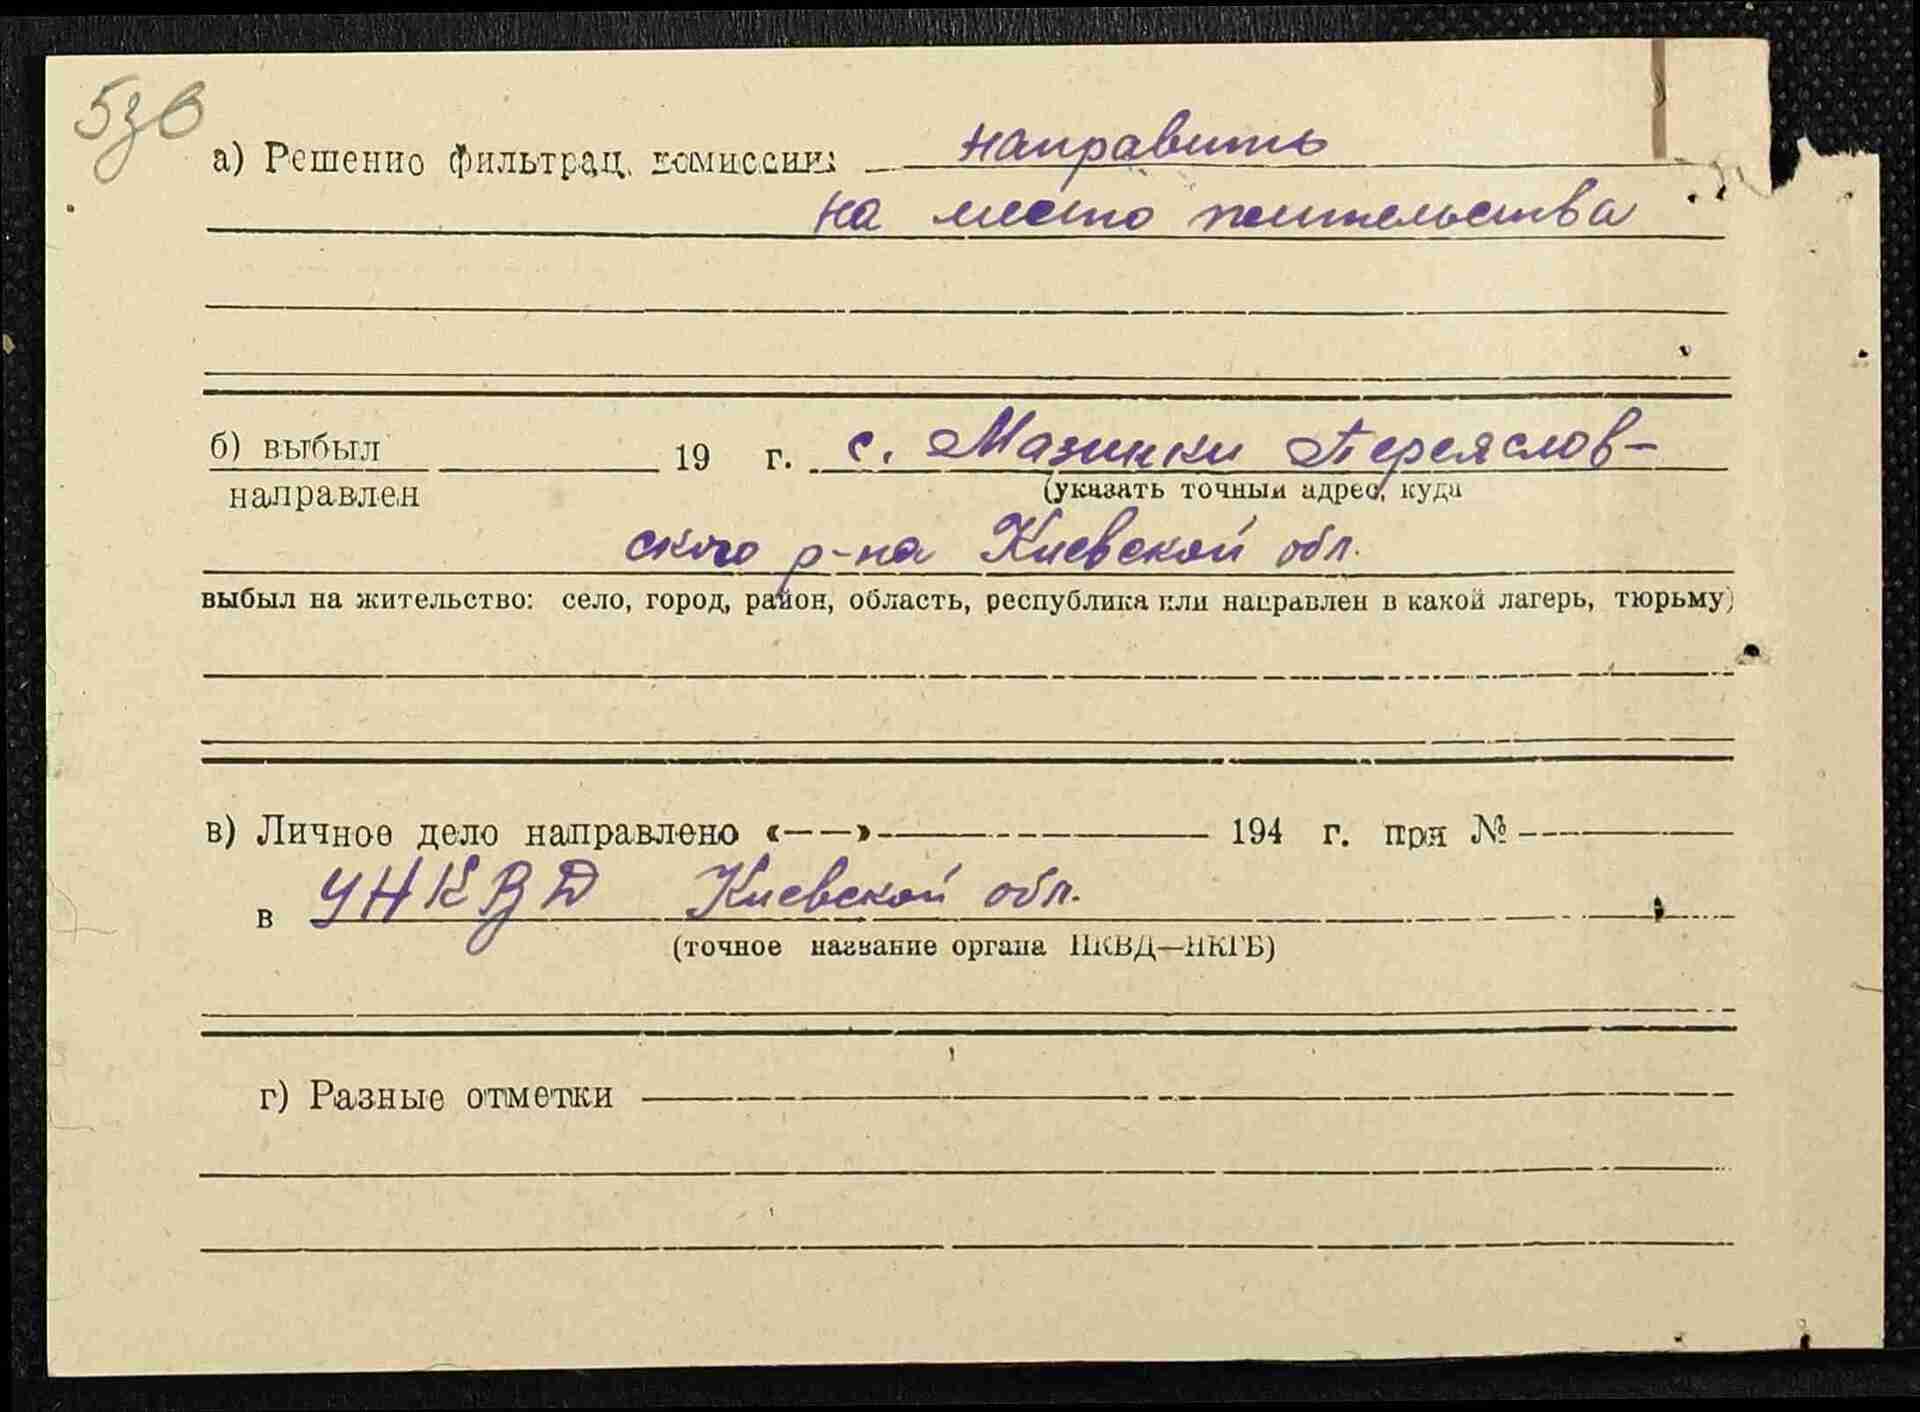 5зв
а) Решение фильтрац. комиссии: направить
на место жительства
б) выбыл 19 г. с. Мазинки Переяслов-
направлен (указать точный адрес, куда
ского р-на Киевской обл.
выбыл на жительство: село, город, район, область, республика или направлен в какой лагерь, тюрьму)
в) Личное дело направлено «——» 194 г. при №
в УНКВД Киевской обл.
(точное название органа НКВД—НКГБ)
г) Разные отметки